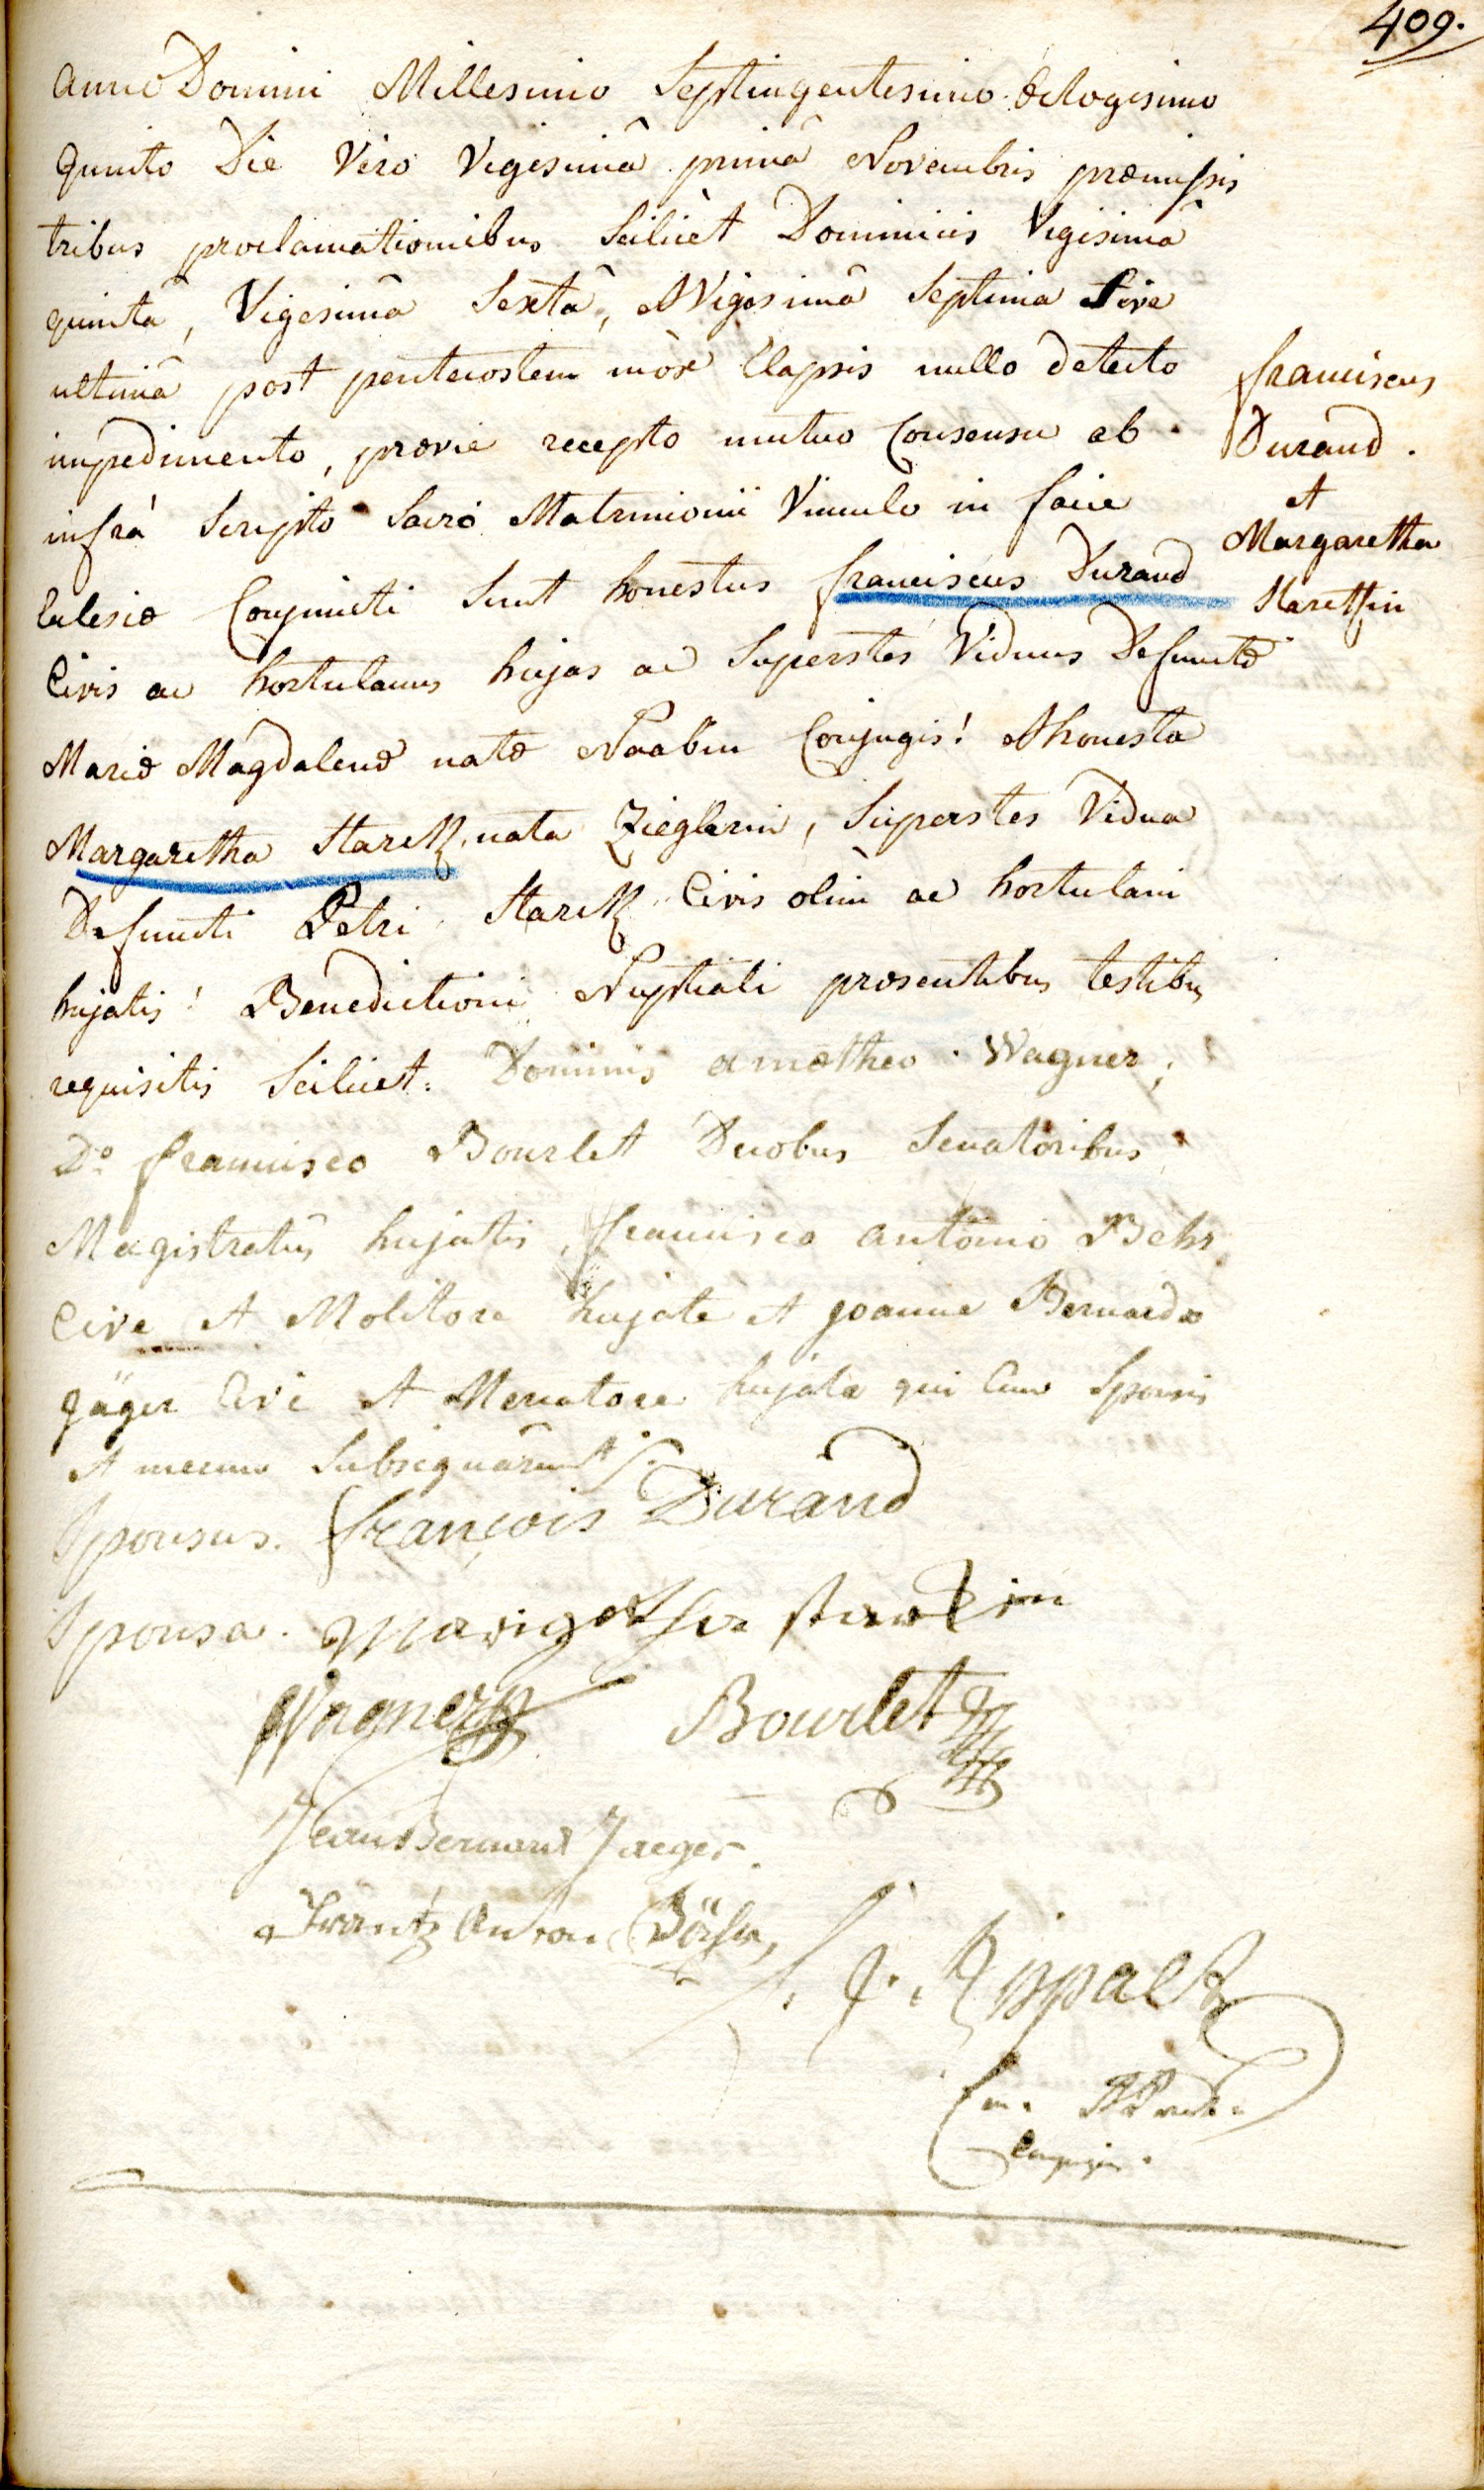 409.
Anno Domini Millesimo Septingentesimo Octogesimo
quinto Die Vero Vigesimâ primâ Novembris præmissis
tribus proclamationibus Scilicèt Dominicis Vigesimâ
quintâ, Vigesimâ Sextâ, et Vigesimâ Septima Sive
ultimâ post pentecostem mòx Elapsis nullo detecto
impedimento, prævie recepto mutuo Consensu ab
infrà Scripto Sacro Matrimonii Vinculo in facie
Eclesiæ Conjuncti Sunt honestus franciscus Durand
Civis ac hortulanus hujas ac Superstes Viduus Defunctæ
Mariæ Magdalenæ natæ Naabin Conjugis! et honesta
Margaretha Starck, nata Zieglerin, Superstes Vidua
Defuncti Petri Starck Civis olim ac hortulani
hujatis! Benedictioni Nuptiali præsentibus testibus
requisitis Scilicet: Dominis amatheo Wagner,
Do francisco Bourlet Duobus Senatoribus
Magistratûs hujatis, francisco antonio Behr
Cive et Molitore hujate et joanne Bernardo
jäger Cive et Mercatore hujate qui Cum Sponsis
et mecum Subsignârunt
franciscus
Durand.
et
Margaretha
Starckin
Sponsus. françois Durand
Sponsa. Marigetha starckin
Wagner Bourlet
Jean Bernard Jaeger.
Frantz Anton Böhr,